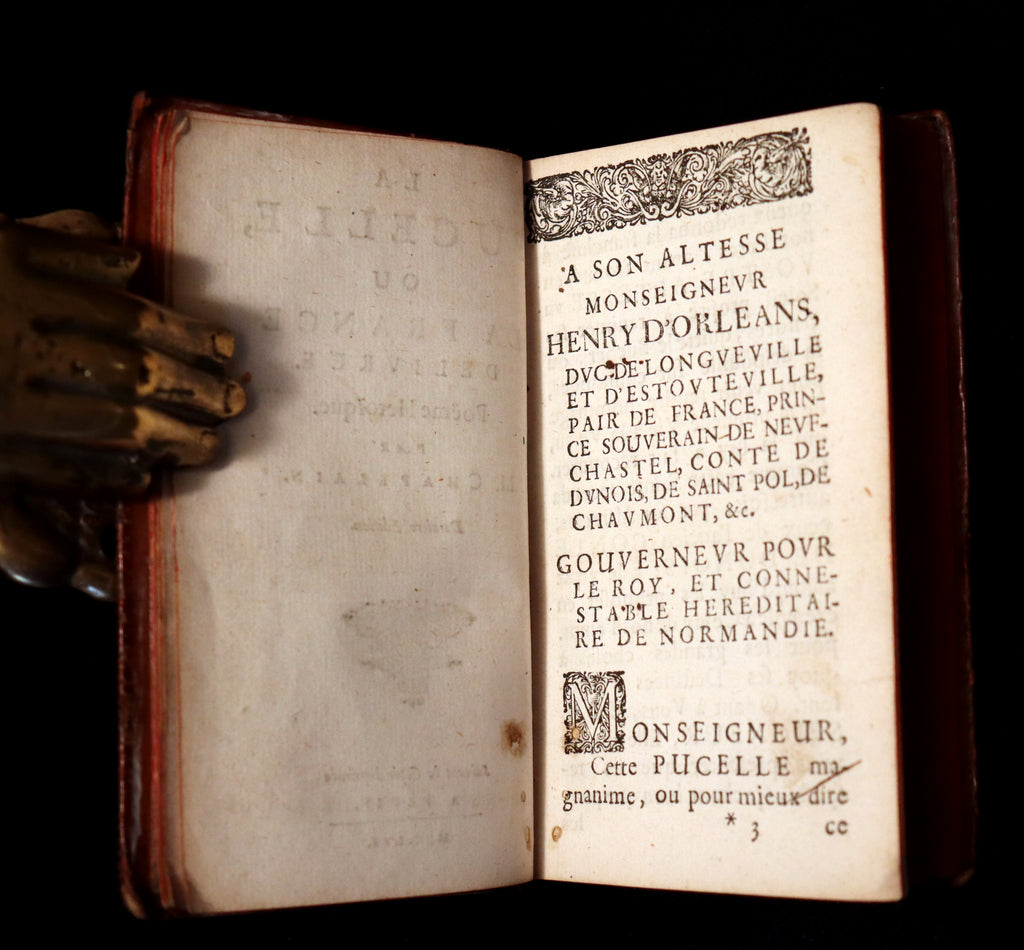 LA
UCELLE,
OU
LA FRANCE
DELIVRE'E.
Poëme Heroïque.
PAR
M. CHAPELAIN.
A SON ALTESSE
MONSEIGNEVR
HENRY D'ORLEANS,
DVC DE LONGVEVILLE
ET D'ESTOVTEVILLE,
PAIR DE FRANCE, PRIN-
CE SOUVERAIN DE NEVF-
CHASTEL, CONTE DE
DVNOIS, DE SAINT POL, DE
CHAVMONT, &c.
GOUVERNEVR POVR
LE ROY, ET CONNE-
STABLE HEREDITAI-
RE DE NORMANDIE.
MONSEIGNEUR,
Cette PUCELLE ma-
gnanime, ou pour mieux dire
* 3 ce